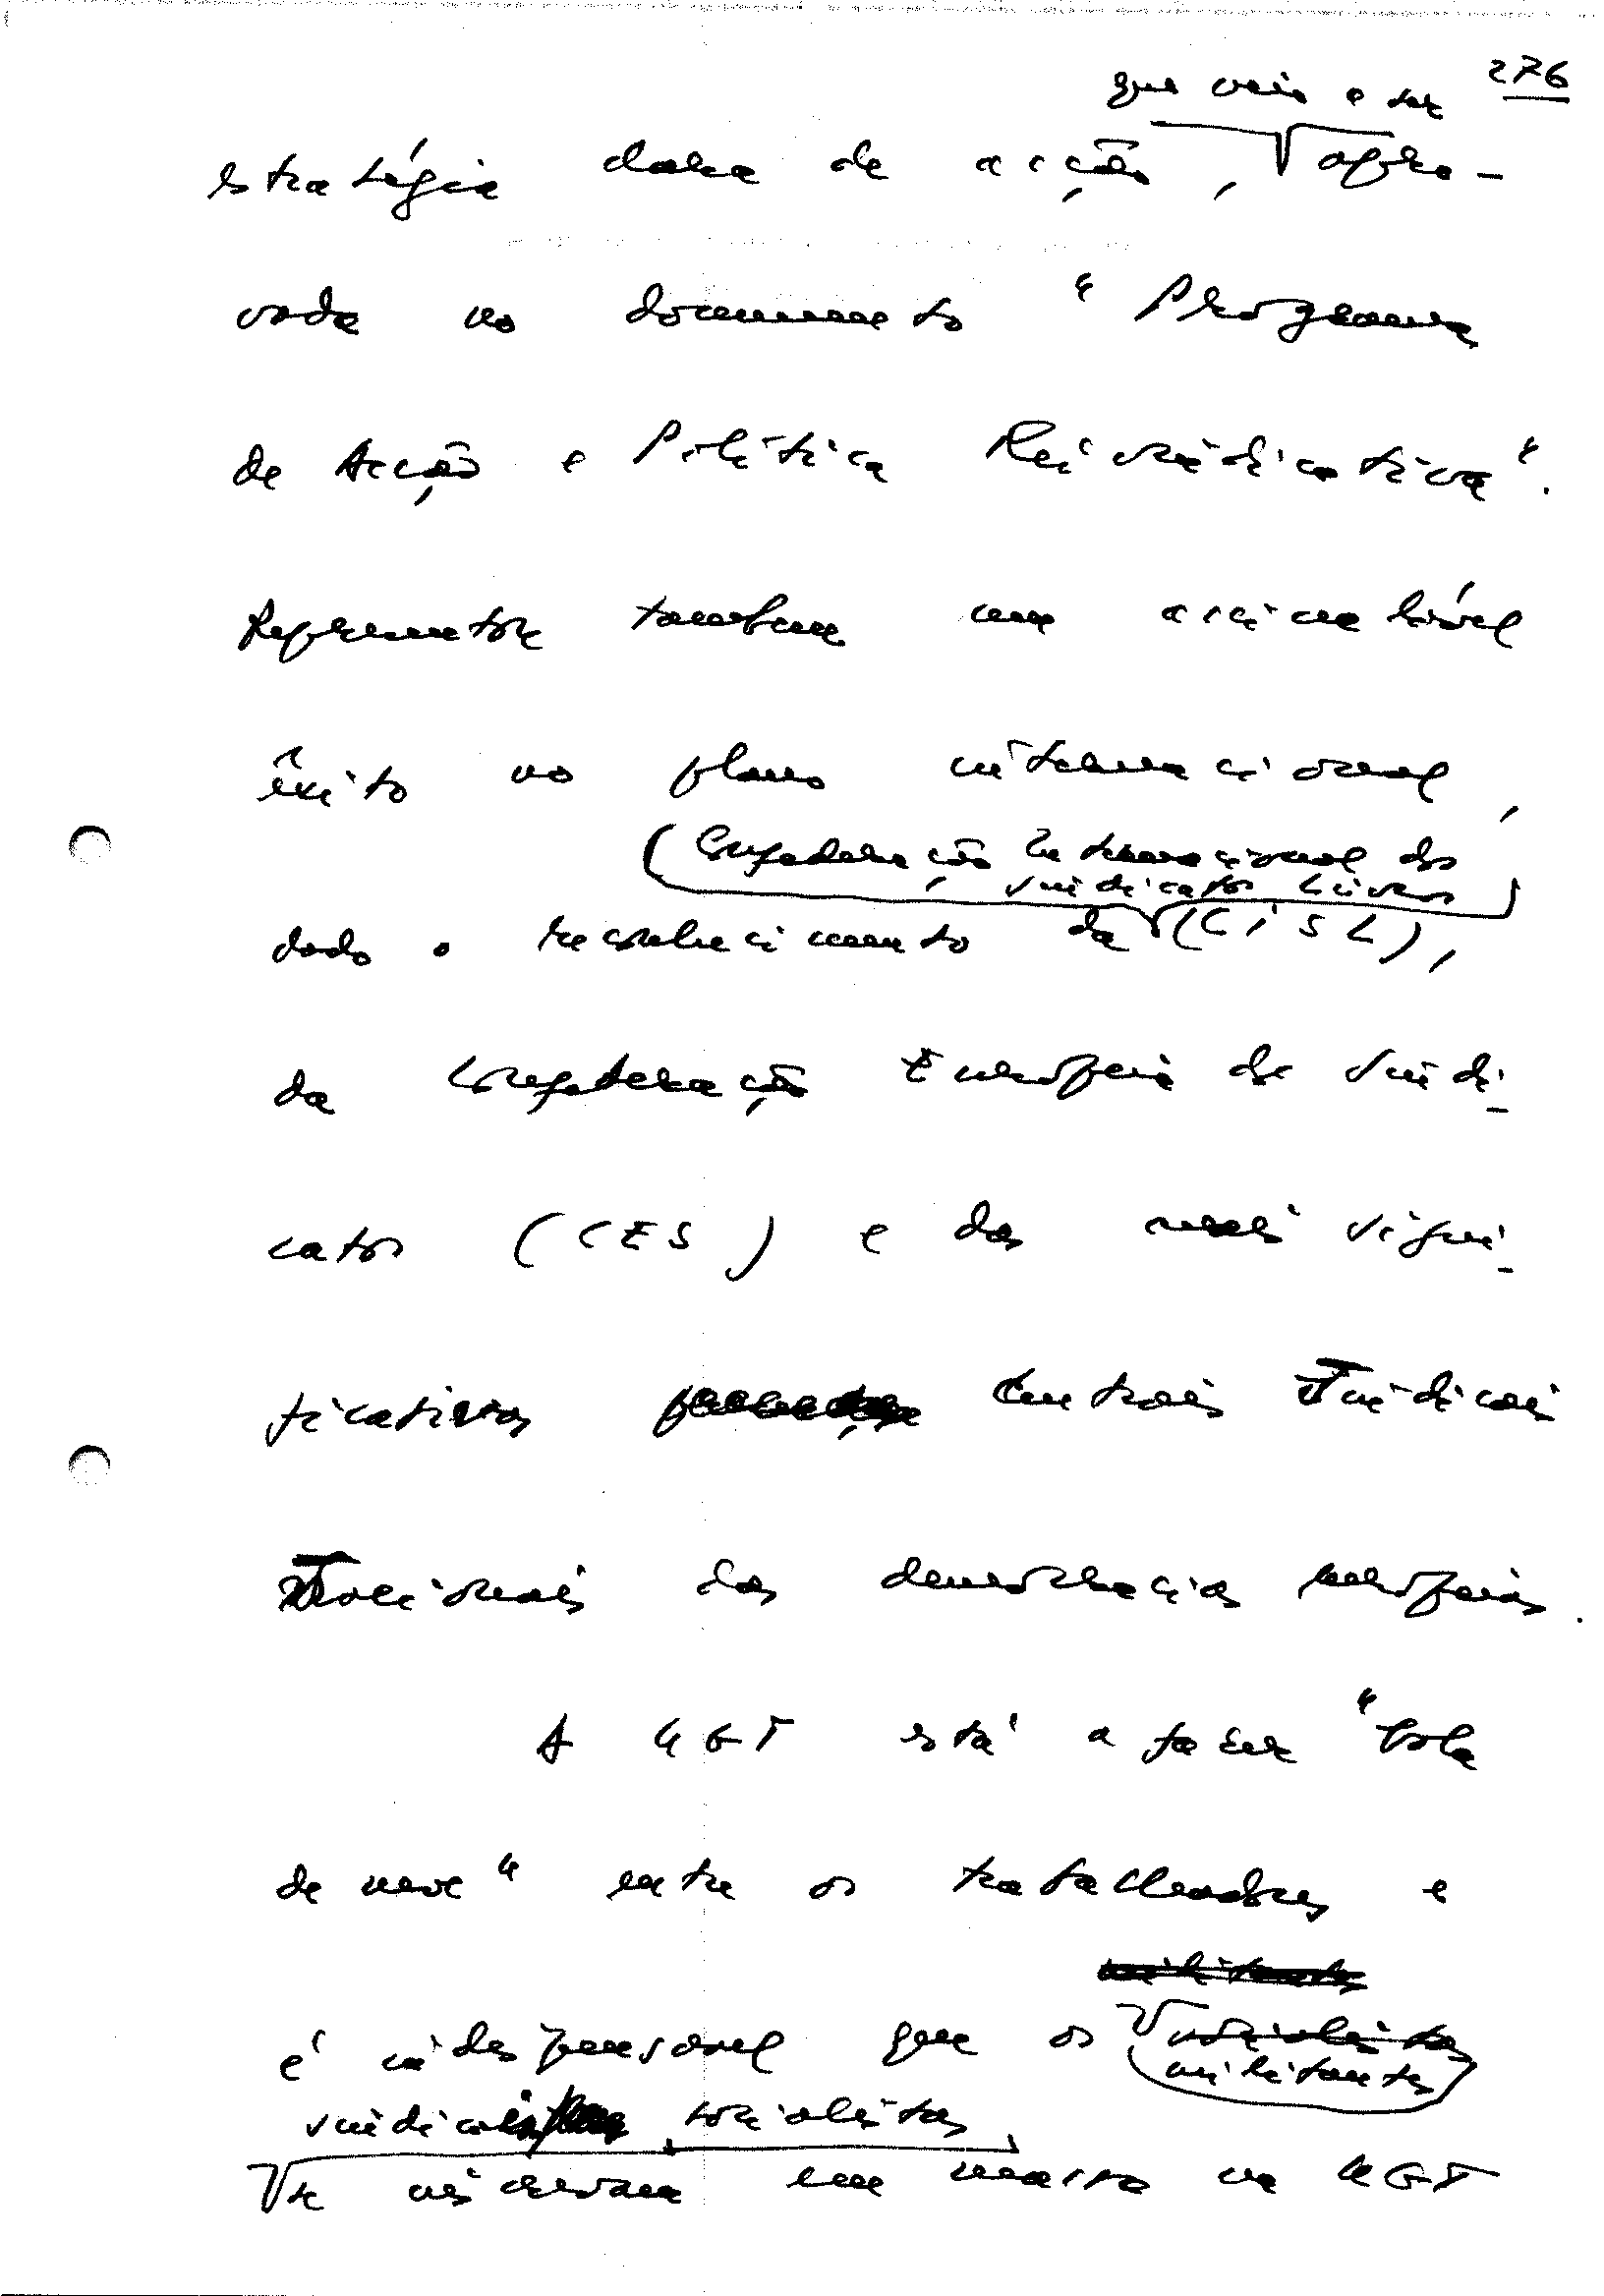 276
que veio a ser
estratégia clara de acção, apro-
vada no documento "Programa
de Acção e Política Reivindicativa".
Representou também um assinalável
êxito no plano internacional,
(Confederação Internacional dos
Sindicatos Livres
dado o reconhecimento da (CISL),
da Confederação Europeia de Sindi-
catos (CES) e das mais signi-
ficativas Centrais Sindicais
Nacionais das democracias europeias.
A UGT está a fazer "bola
de neve" entre os trabalhadores e
militantes
é indispensável que os socialistas
militantes
sindicais socialistas
se inscrevam em massa na UGT